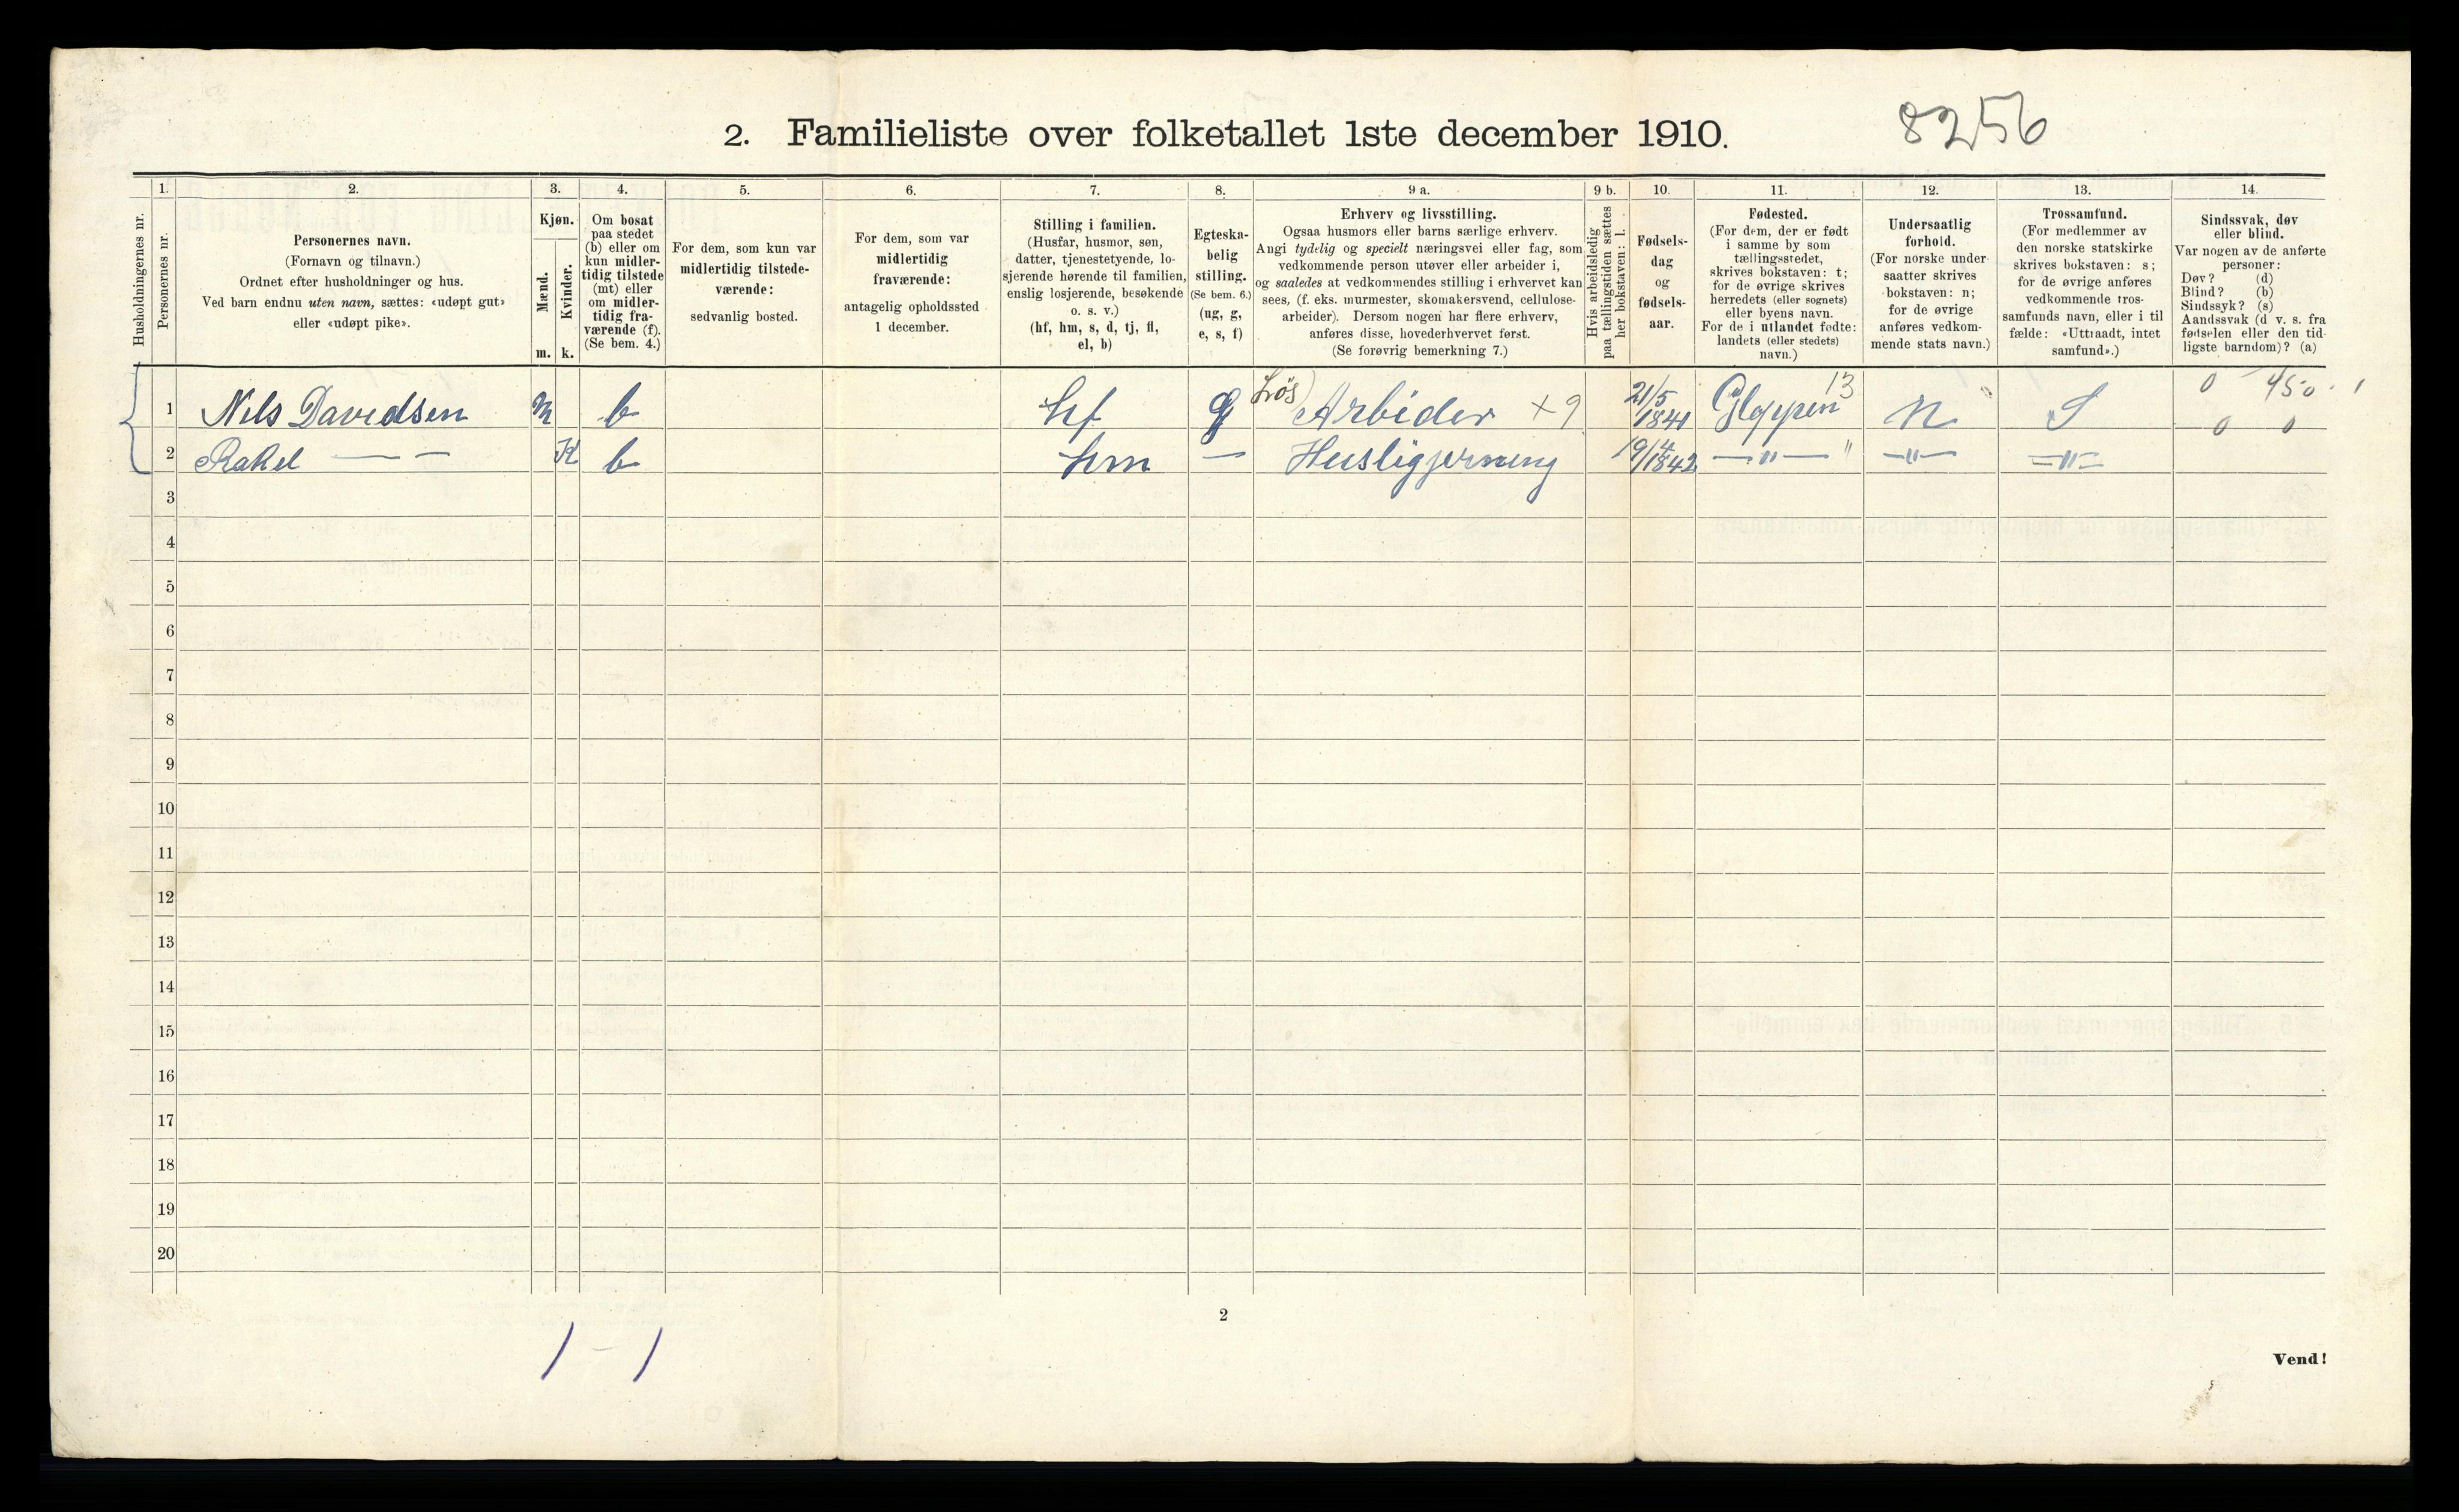 2. Familieliste over folketallet 1ste december 1910.
8256
1. 2. 3. 4. 5. 6. 7. 8. 9 a. 9 b. 10. 11. 12. 13. 14.
Husholdningernes nr.
Personernes nr.
Personernes navn.
(Fornavn og tilnavn.)
Ordnet efter husholdninger og hus.
Ved barn endnu uten navn, sættes: «udøpt gut»
eller «udøpt pike».
Kjøn.
Mænd.
Kvinder.
m. k.
Om bosat
paa stedet
(b) eller om
kun midler-
tidig tilstede
(mt) eller
om midler-
tidig fra-
værende (f).
(Se bem. 4.)
For dem, som kun var
midlertidig tilstede-
værende:
sedvanlig bosted.
For dem, som var
midlertidig
fraværende:
antagelig opholdssted
1 december.
Stilling i familien.
(Husfar, husmor, søn,
datter, tjenestetyende, lo-
sjerende hørende til familien,
enslig losjerende, besøkende
o. s. v.)
(hf, hm, s, d, tj, fl,
el, b)
Egteska-
belig
stilling.
(Se bem. 6.)
(ug, g,
e, s, f)
Erhverv og livsstilling.
Ogsaa husmors eller barns særlige erhverv.
Angi tydelig og specielt næringsvei eller fag, som
vedkommende person utøver eller arbeider i,
og saaledes at vedkommendes stilling i erhvervet kan
sees, (f. eks. murmester, skomakersvend, cellulose-
arbeider). Dersom nogen har flere erhverv,
anføres disse, hovederhvervet først.
(Se forøvrig bemerkning 7.)
Hvis arbeidsledig
paa tællingstiden sættes
her bokstaven: l.
Fødsels-
dag
og
fødsels-
aar.
Fødested.
(For dem, der er født
i samme by som
tællingsstedet,
skrives bokstaven: t;
for de øvrige skrives
herredets (eller sognets)
eller byens navn.
For de i utlandet fødte:
landets (eller stedets)
navn.)
Undersaatlig
forhold.
(For norske under-
saatter skrives
bokstaven: n;
for de øvrige
anføres vedkom-
mende stats navn.)
Trossamfund.
(For medlemmer av
den norske statskirke
skrives bokstaven: s;
for de øvrige anføres
vedkommende tros-
samfunds navn, eller i til-
fælde: «Uttraadt, intet
samfund».)
Sindssvak, døv
eller blind.
Var nogen av de anførte
personer:
Døv? (d)
Blind? (b)
Sindssyk? (s)
Aandssvak (d. v. s. fra
fødselen eller den tid-
ligste barndom)? (a)
1 Nils Davidsen m b hf g Løs Arbider x 9 21/5 1841 Gloppen 13 n S 0 450 0 0
2 Rakel — — K b hm — Husligjerning 19/4 1842 —"— " —"— —"—
3
4
5
6
7
8
9
10
11
12
13
14
15
16
17
18
19
20
2
1 - 1
Vend!